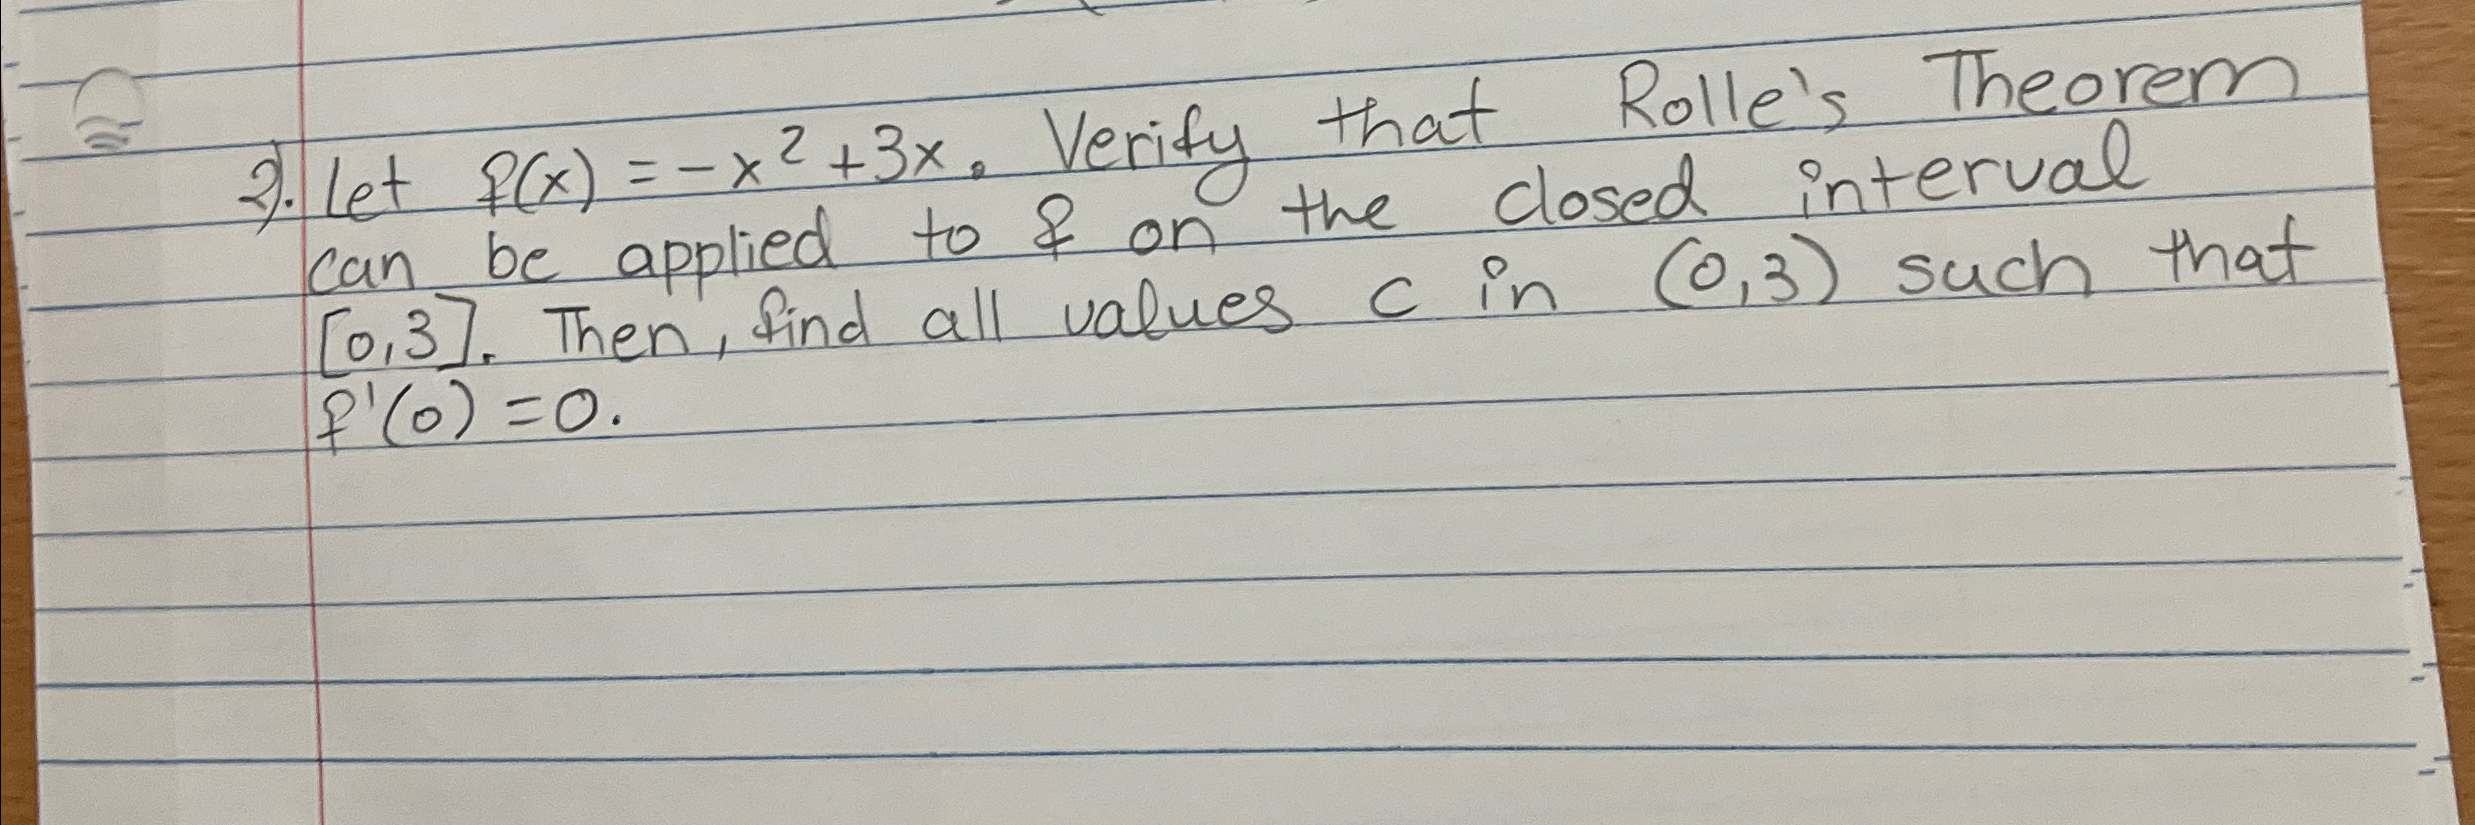 2). Let f(x) = -x² + 3x. Verify that Rolle's Theorem
can be applied to f on the closed interval
[0,3]. Then, find all values c in (0,3) such that
f'(0) = 0.